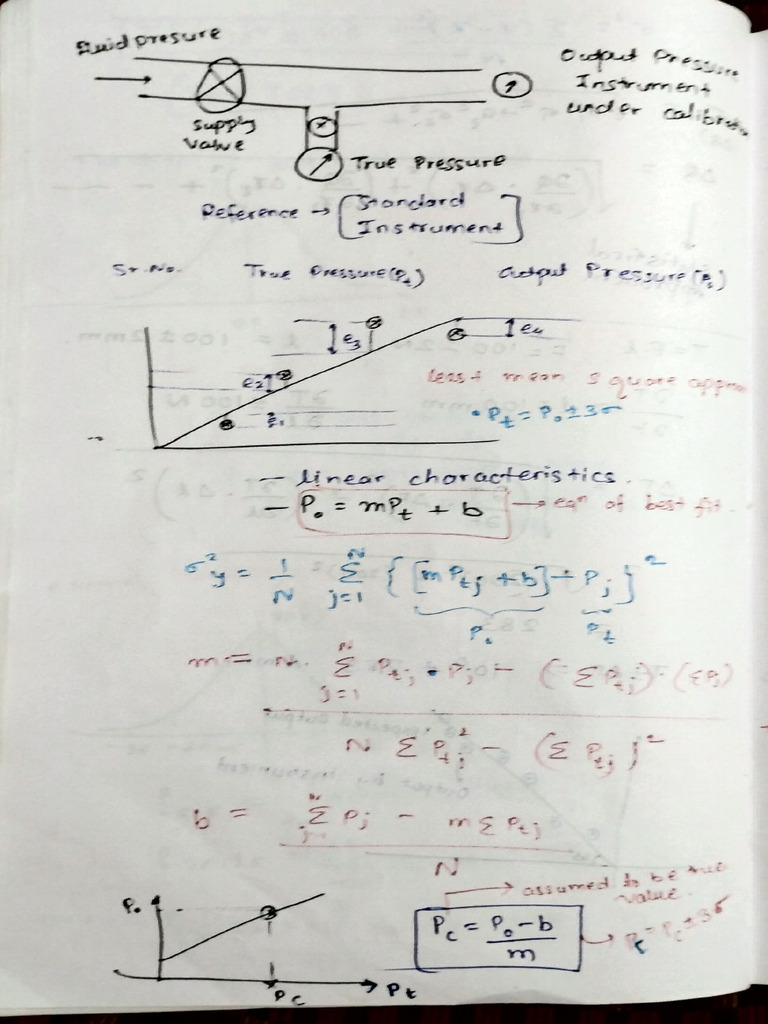 fluid pressure
Output Pressure
Instrument
under calibratio
supply
valve
True Pressure
Reference → [Standard
Instrument]
Sr. No. True Pressure (Pt) Output Pressure (Po)
e3 e4
e2
e1
least mean square approx
• Pt = Po ± 3σ
- linear characteristics.
- Po = mPt + b → eqn of best fit.
σ²y = 1/N Σ(j=1 to N) { [m Ptj + b] - Pj }²
Po Pt
m = N. Σ(j=1 to N) Ptj • Pj - (Σ Ptj) · (ΣPj)
N Σ Ptj² - (Σ Ptj)²
b = Σ Pj - m Σ Ptj
N
→ assumed to be true
value.
Po
Pc = Po - b / m
→ Pt = Pc ± 3σ
Pc Pt